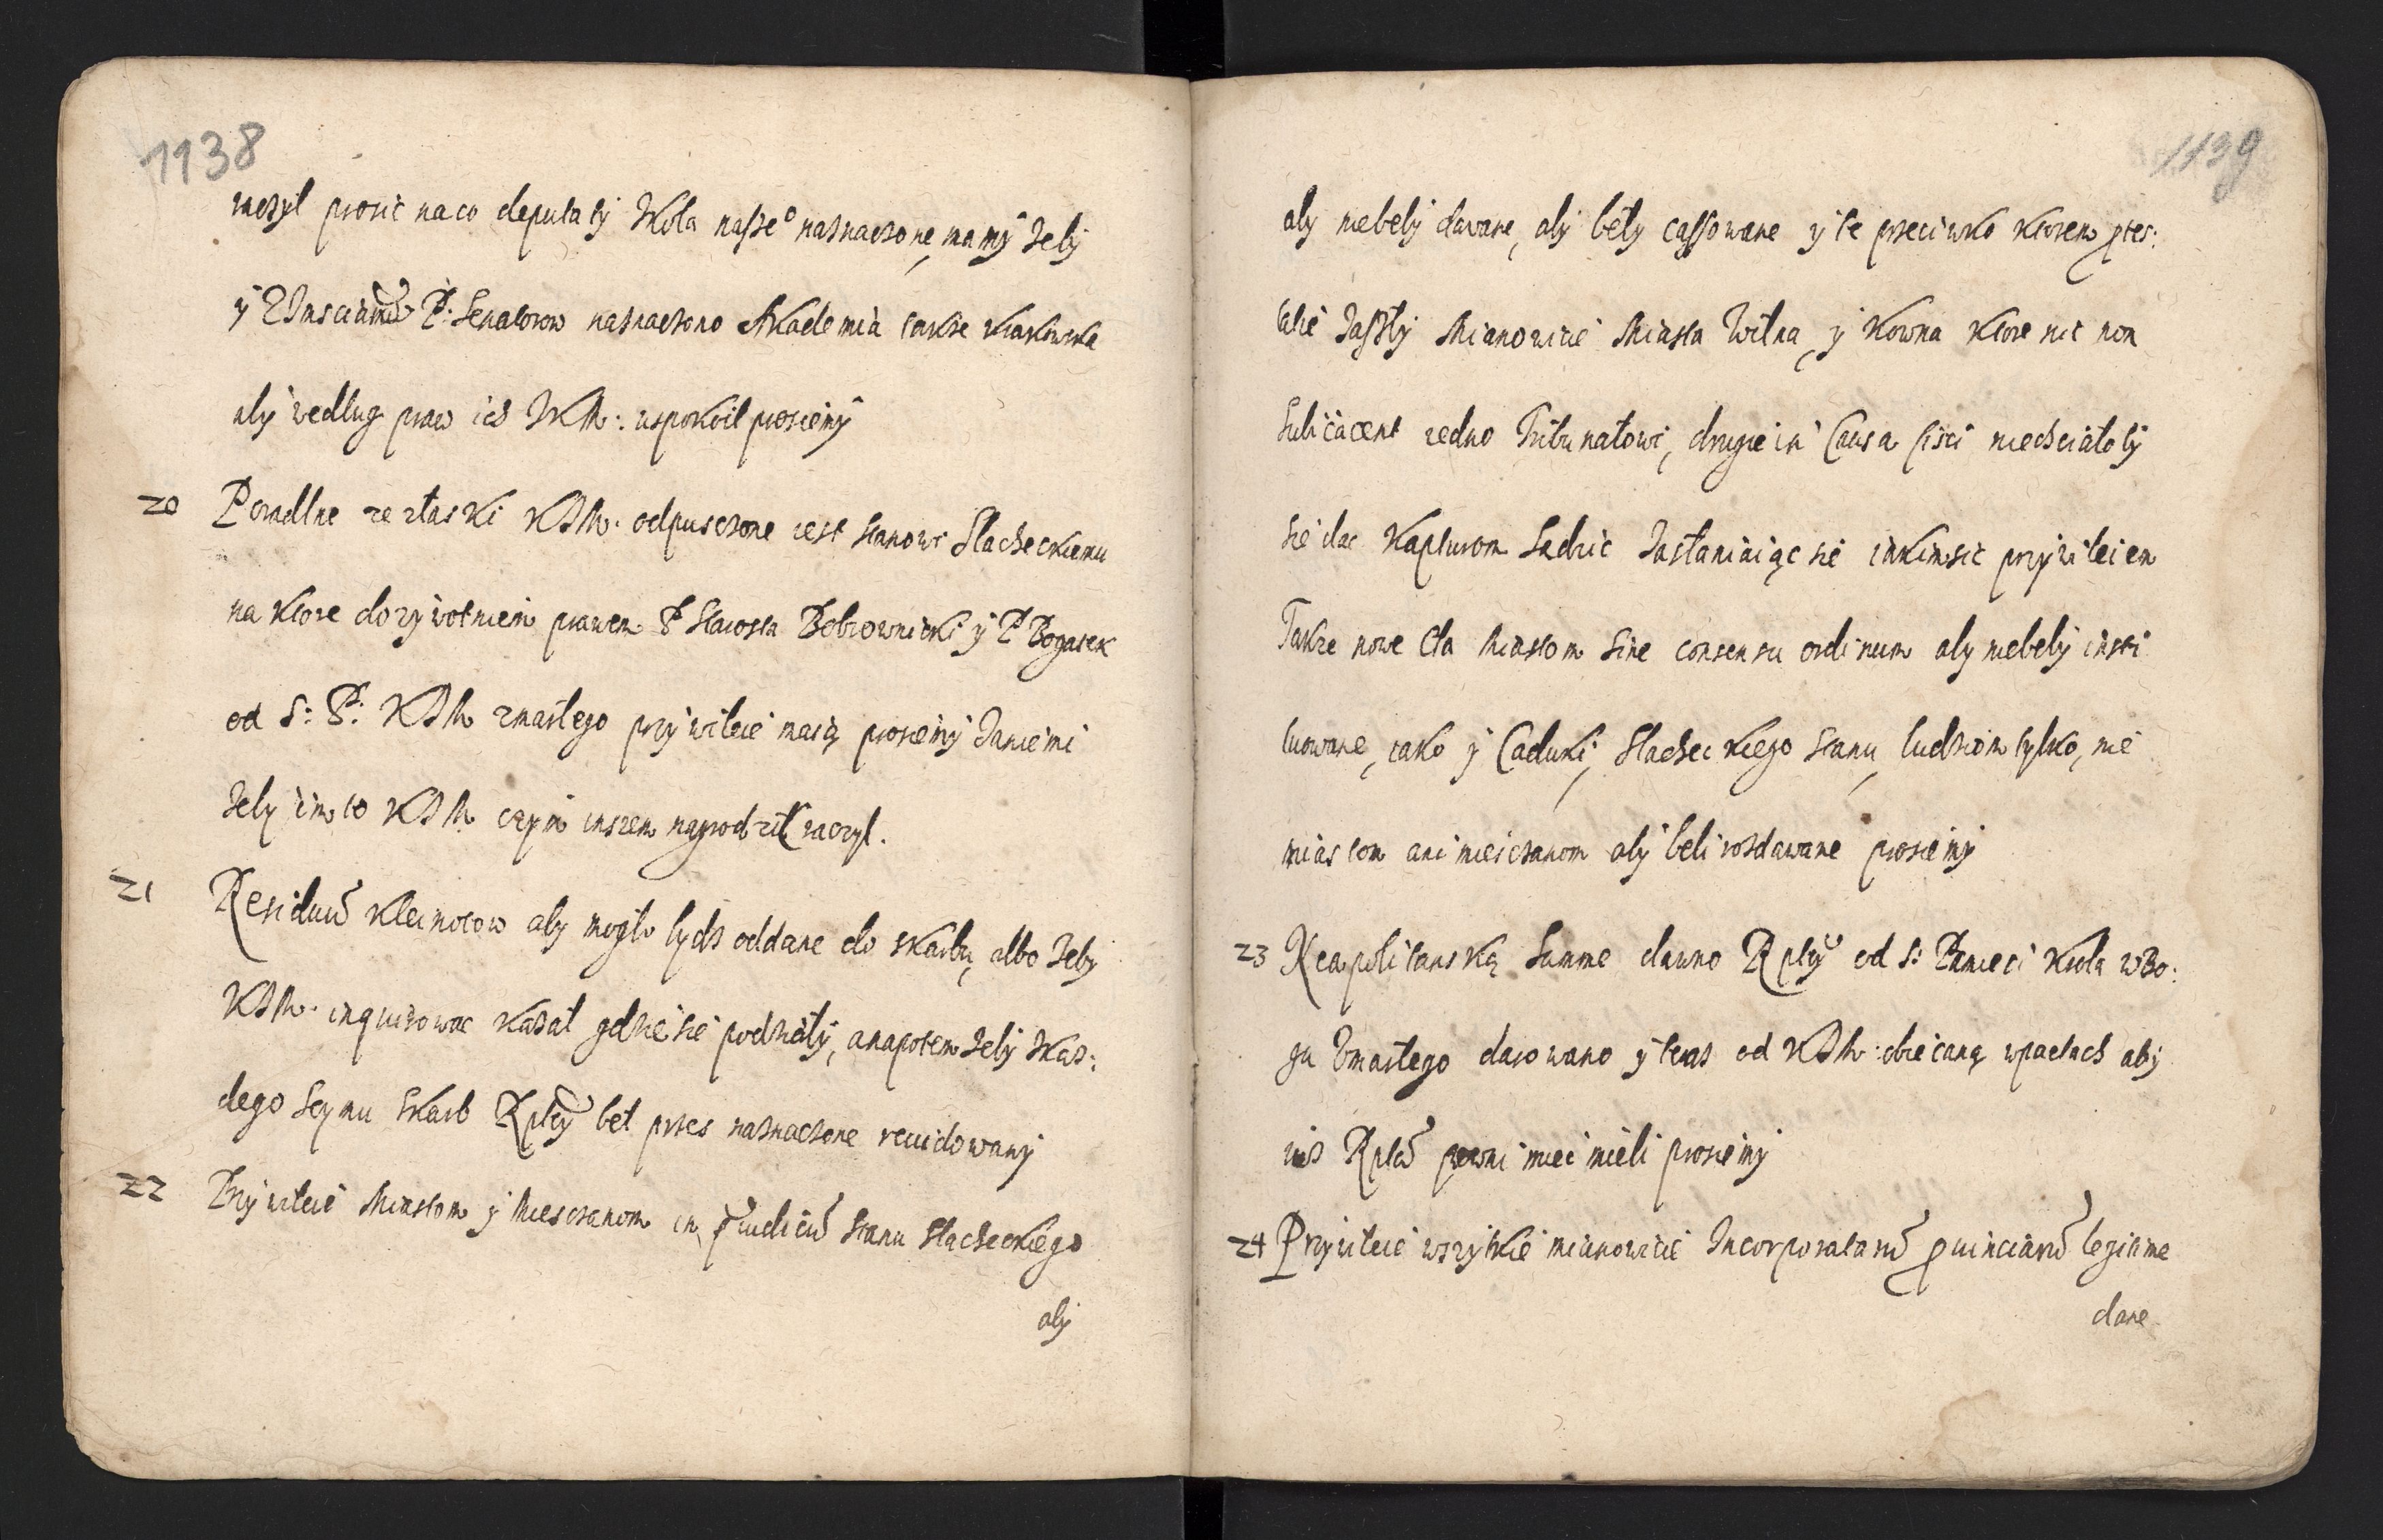 1138
raczyl prosic na co deputaty Kola nasze° naznaczone, mamy zeby
y z Imsciamũ P: Senatorow naznaczono Akademia takze krakowska
aby wedlug praw ich JKM: uspokoil prosiemy
20 Poradlne ze zlaski KJM: odpusczone iest stanowi Slacheckiemu
na ktore dozywotniem prawem P Starosta Bobrownicki y P Bogatek
od S: P: KJM zmarłego przywileie maią prosiemy Zaniemi
zeby im to KJM czym inszem nagrodzić raczyl.
21 Residuũ kleinotow aby mogło bydz oddane do skarbu, albo zeby
KJM: inquirowac kazał gdzie sie podziały, a napotem zeby kaz:
dego Seymu skarb Rpltey beł przes naznaczone rewidowany
22 Przywileie Miastom y Miesczanom in p̃iudiciũ stanu slacheckiego
aby
1139
aby niebely dawane, aby bely cassowane y te przeciwko ktorem ptes:
tatie Zaszły Mianowicie Miasta Wilna, y Kowna ktore sie non
subiiacent iedno Tribunałowi, drugie in Causa fisci niechciałoby
sie dac Kapturom Sądzic Zasłaniaiąc sie iakimsic przywileiem
Takze nowe Cła Miastom sine consensu ordinum aby niebely insti
tuowane, iako y Caduki, slacheckiego stanu, ludziom tylko, nie
miastom ani miesczanom aby beli rozdawane prosiemy
23 Neapolitanską Summe dawno Rpltey od S: Pamieci Krola w Bo:
gu Zmarłego darowano y teraz od KJM: obiecaną w pactach aby
iuz Rplta pewni miec mieli prosiemy
24 Przywileie wszytkie mianowicie Incorporatarũ puinciarũ legitime
dane